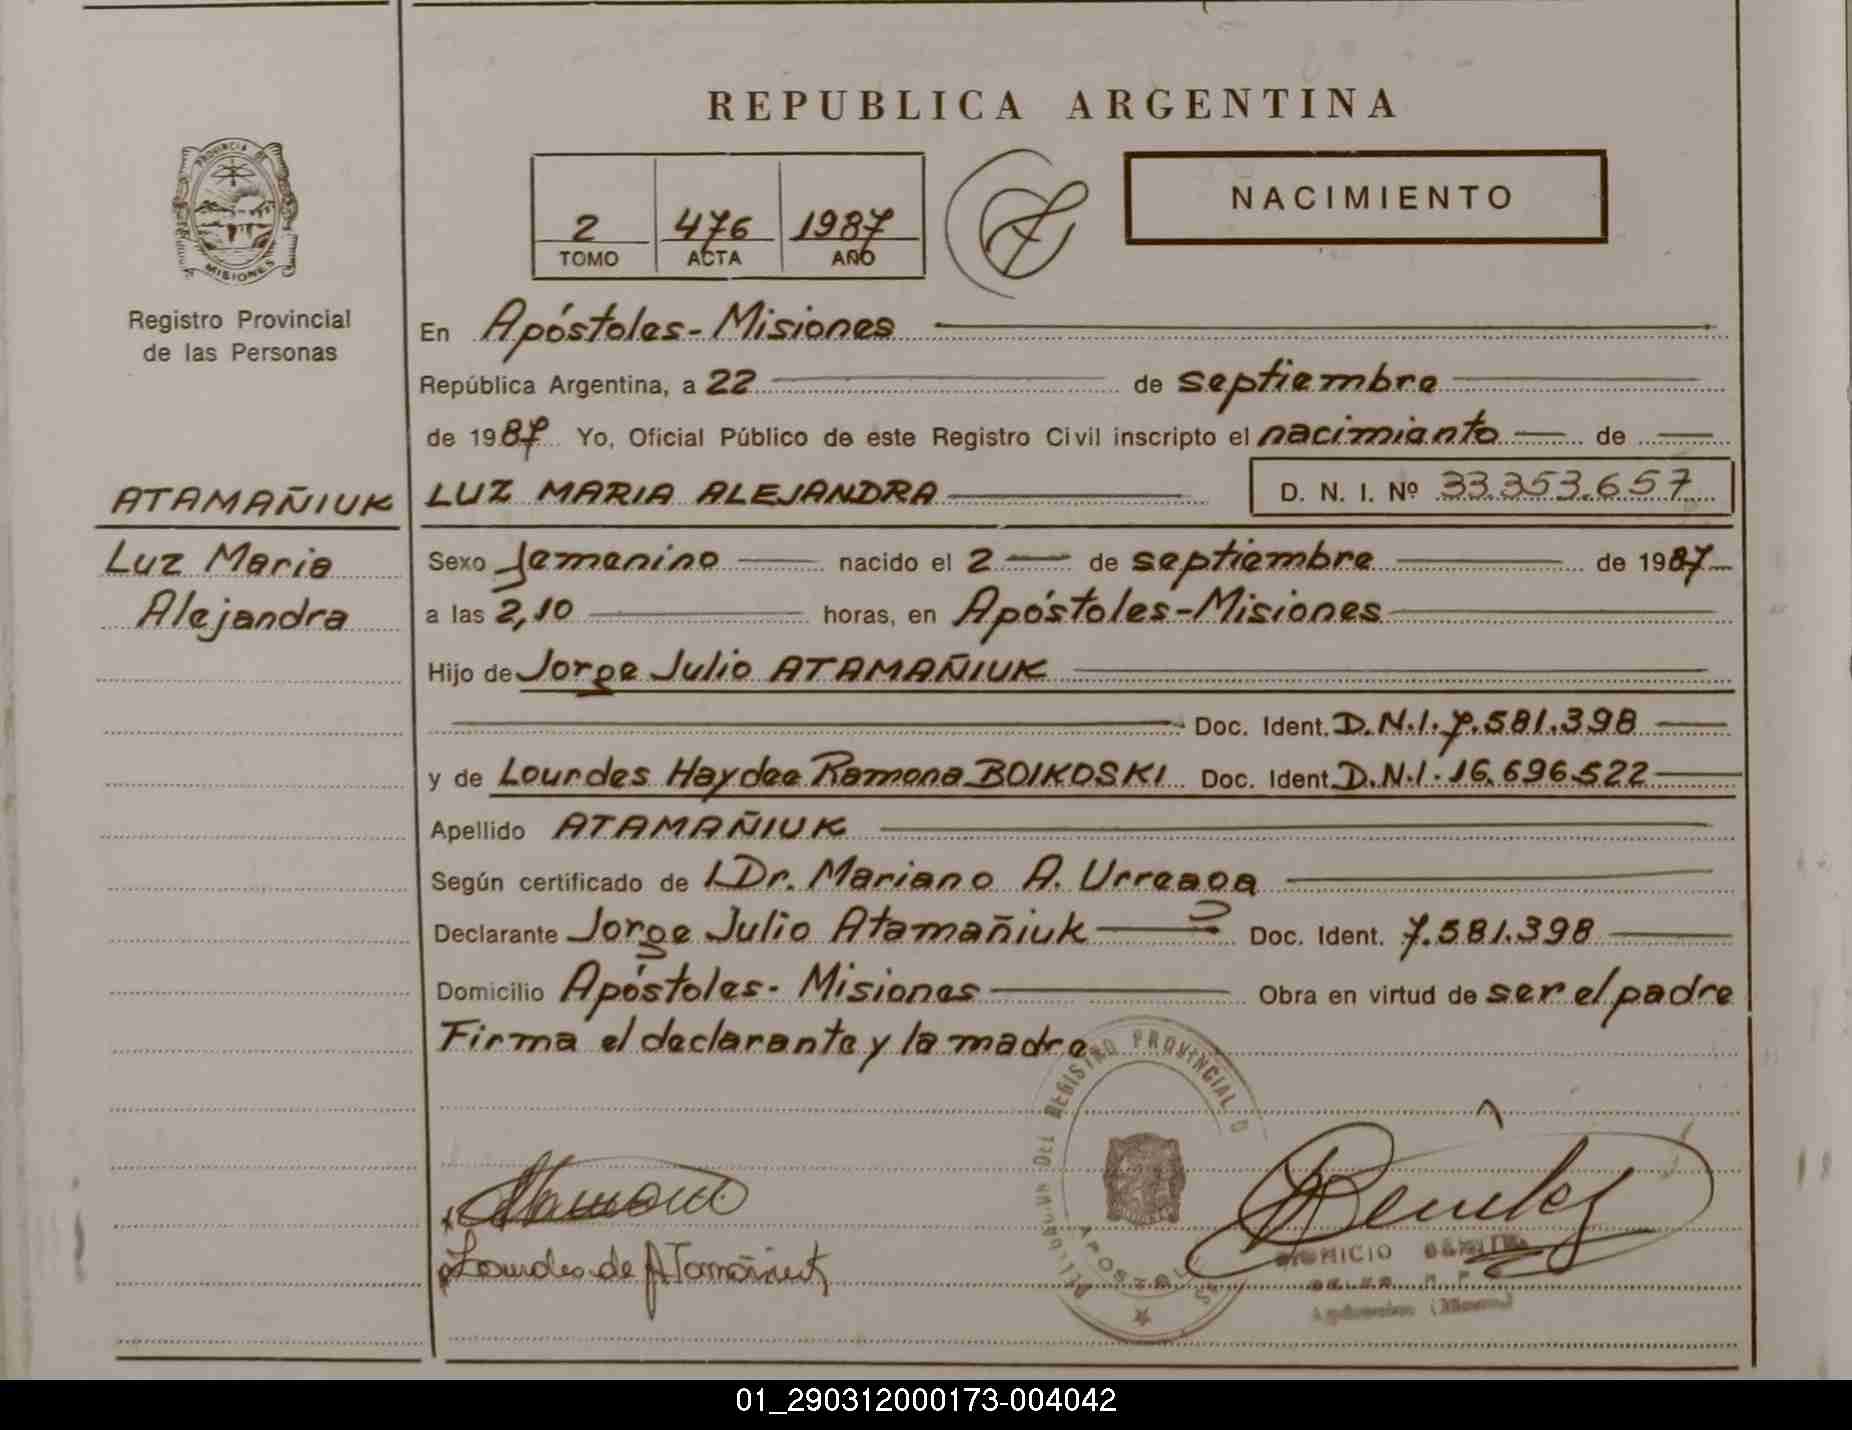 REPUBLICA ARGENTINA
PROVINCIA DE
MISIONES
Registro Provincial
de las Personas
2 476 1987
TOMO ACTA AÑO
NACIMIENTO
En Apóstoles-Misiones
República Argentina, a 22 de septiembre
de 1987 Yo, Oficial Público de este Registro Civil inscripto el nacimiento de
ATAMAÑIUK
Luz Maria
Alejandra
LUZ MARIA ALEJANDRA D. N. I. Nº 33.353.657
Sexo femenino nacido el 2 de septiembre de 1987
a las 2,10 horas, en Apóstoles-Misiones
Hijo de Jorge Julio ATAMAÑIUK
Doc. Ident. D.N.I. 7.581.398
y de Lourdes Haydee Ramona BOIKOSKI Doc. Ident. D.N.I. 16.696.522
Apellido ATAMAÑIUK
Según certificado de Dr. Mariano A. Urreaga
Declarante Jorge Julio Atamañiuk Doc. Ident. 7.581.398
Domicilio Apóstoles- Misiones Obra en virtud de ser el padre
Firma el declarante y la madre
DEL REGISTRO PROVINCIAL D
APOSTOLES
Lourdes de Atamañiuk
Benitez
01_290312000173-004042